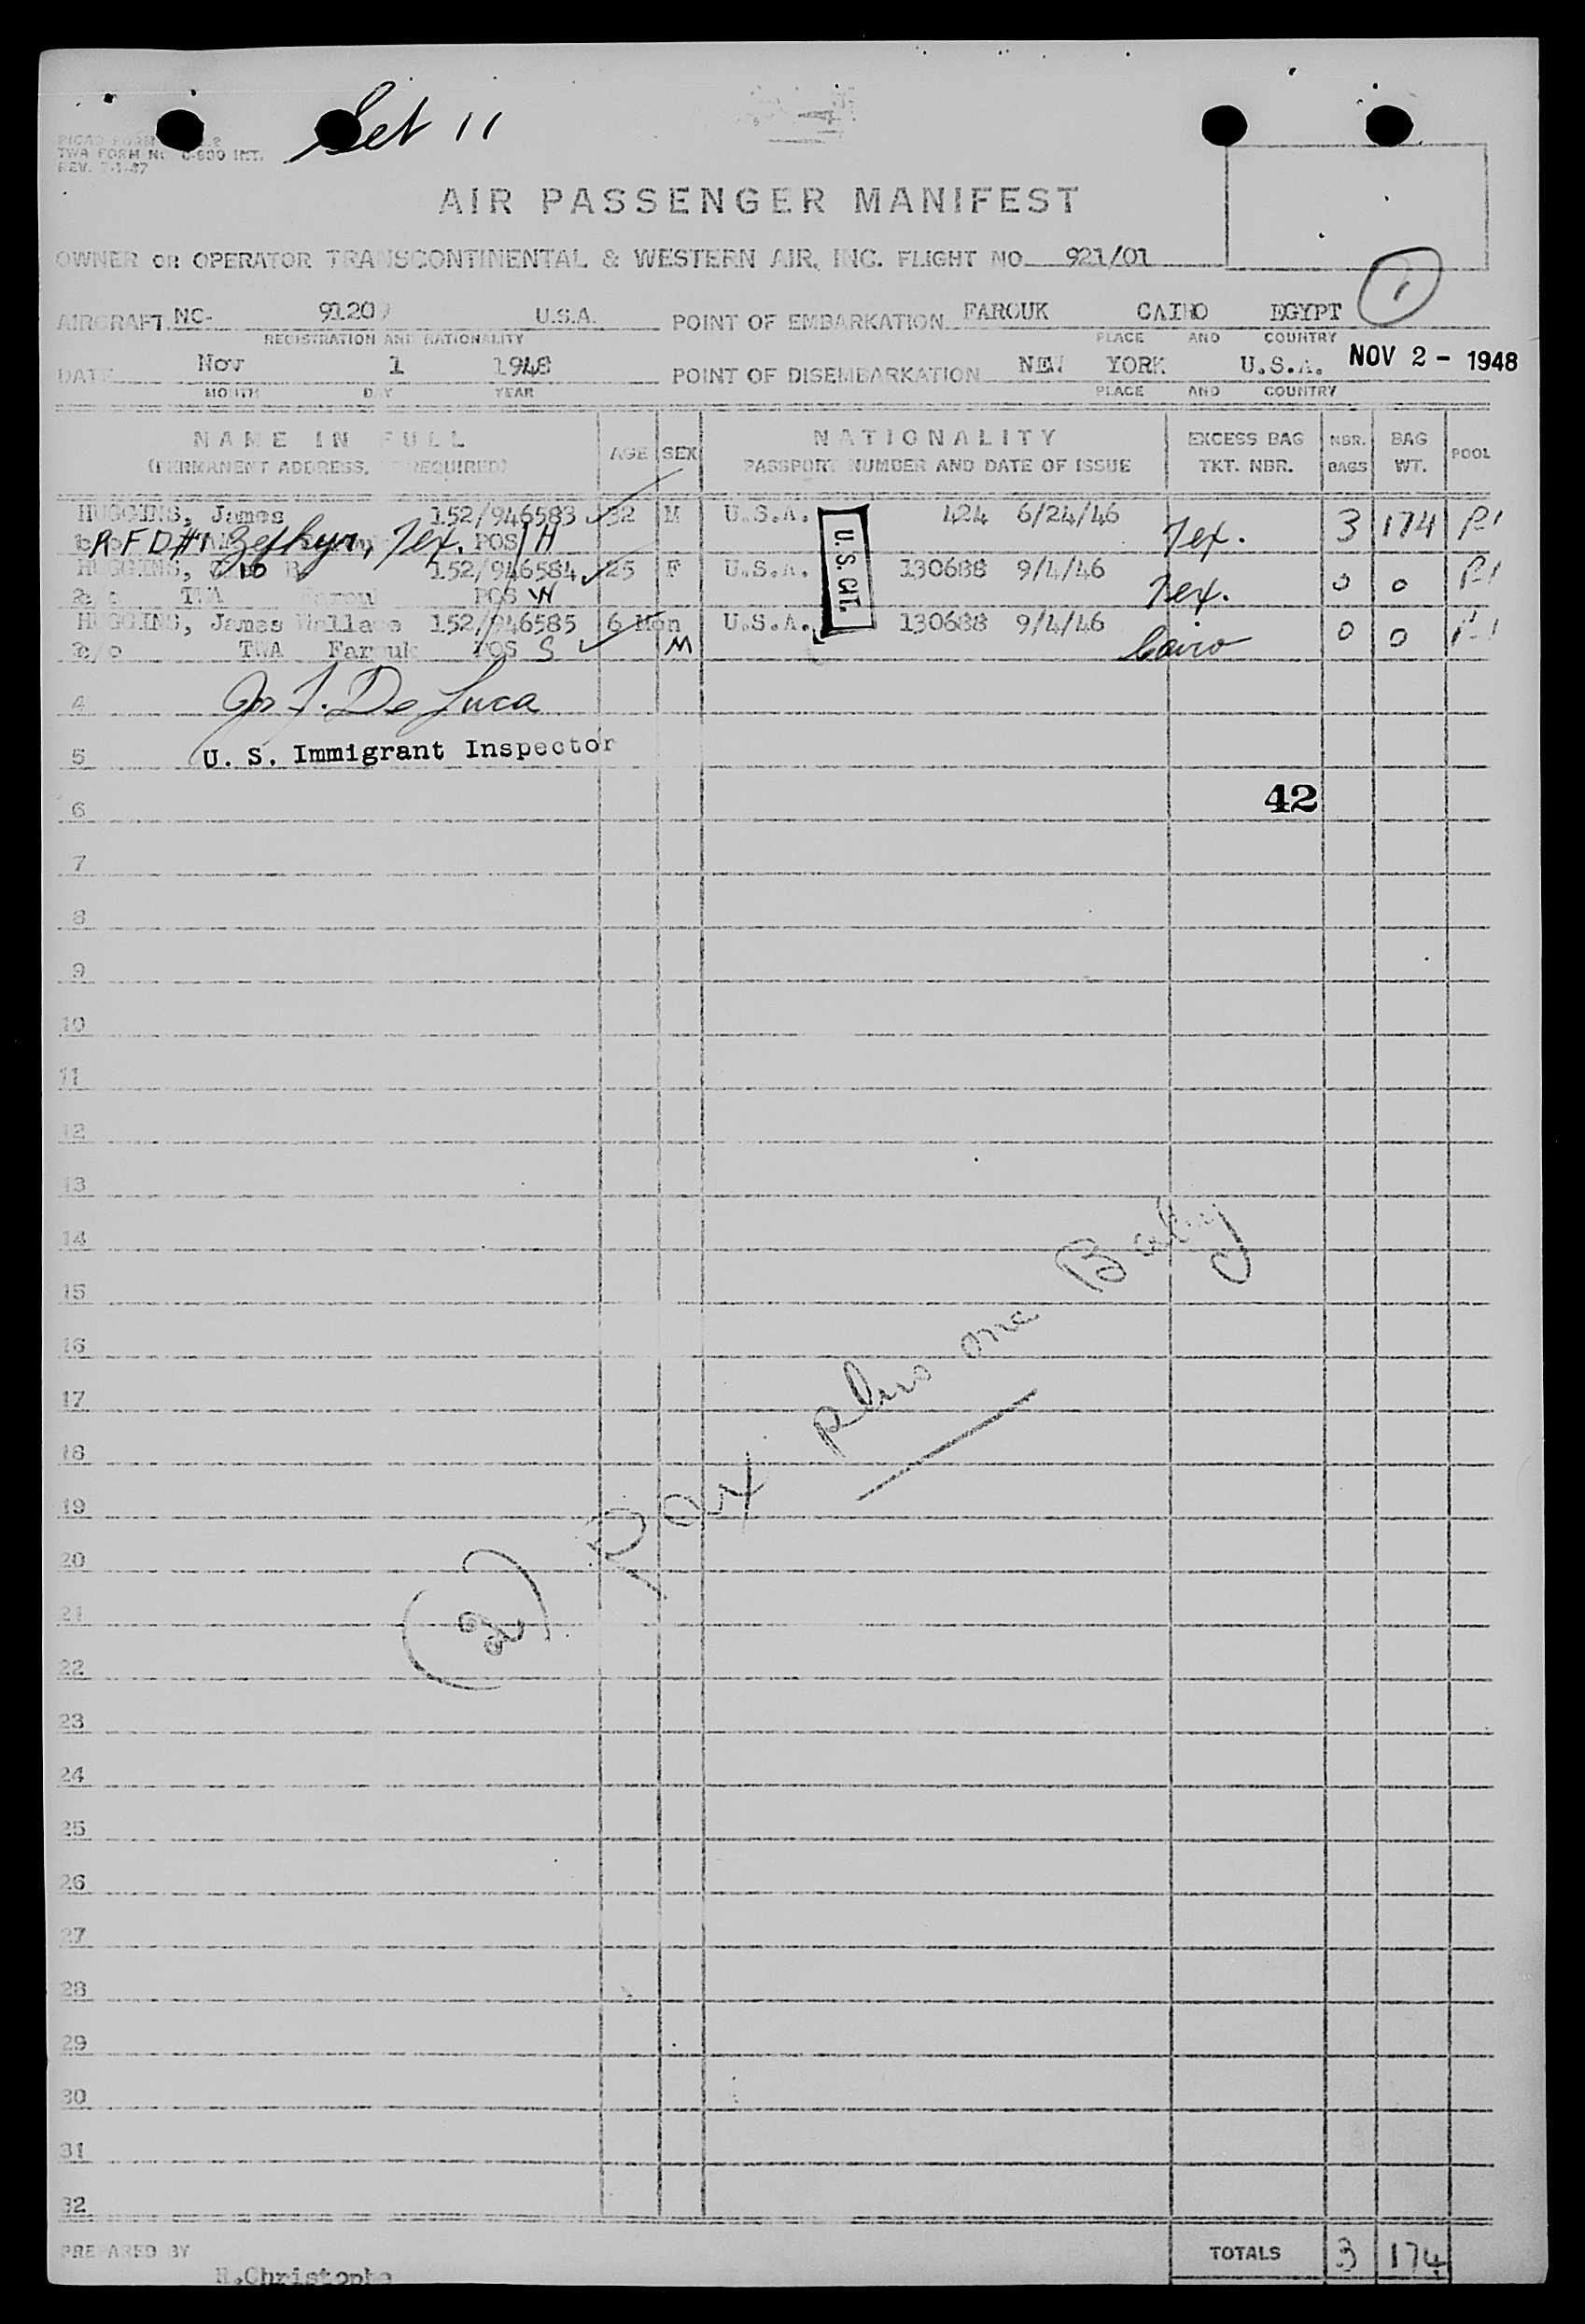 Set 11
TWA FORM INT.
REV.
AIR PASSENGER MANIFEST
OWNER OR OPERATOR TRANSCONTINENTAL & WESTERN AIR, INC. FLIGHT NO 921/01
1
AIRCRAFT NC- U.S.A. POINT OF EMBARKATION FAROUK CAIRO EGYPT
REGISTRATION AND NATIONALITY PLACE AND COUNTRY
DATE Nov 1 1948 POINT OF DISEMBARKATION NEW YORK U.S.A. NOV 2 - 1948
MONTH DAY YEAR PLACE AND COUNTRY
NAME IN FULL AGE SEX NATIONALITY EXCESS BAG NBR. BAG POOL
(PERMANENT ADDRESS, IF REQUIRED) PASSPORT NUMBER AND DATE OF ISSUE TKT. NBR. BAGS WT.
HUGGINS, James 152/946583 32 M U.S.A. 424 6/24/46 Tex. 3 174 P-1
RFD#1 Zephyr, Tex. POS H
HUGGINS, 152/946584 25 F U.S.A. 130688 9/4/46 Tex. 0 0 P-1
c/o TWA Farouk POS W
HUGGINS, James Wallace 152/946585 6 Mon U.S.A. 130688 9/4/46 Cairo 0 0 P-1
c/o TWA Farouk POS S M
U.S. CIT.
4 Jos J. De Luca
5 U. S. Immigrant Inspector
6 42
7
8
9
10
11
12
13
14
15
16
17
18
19
20
21
22
23
24
25
26
27
28
29
30
31
32
(2) Pax plus one Baby
PREPARED BY TOTALS 3 174